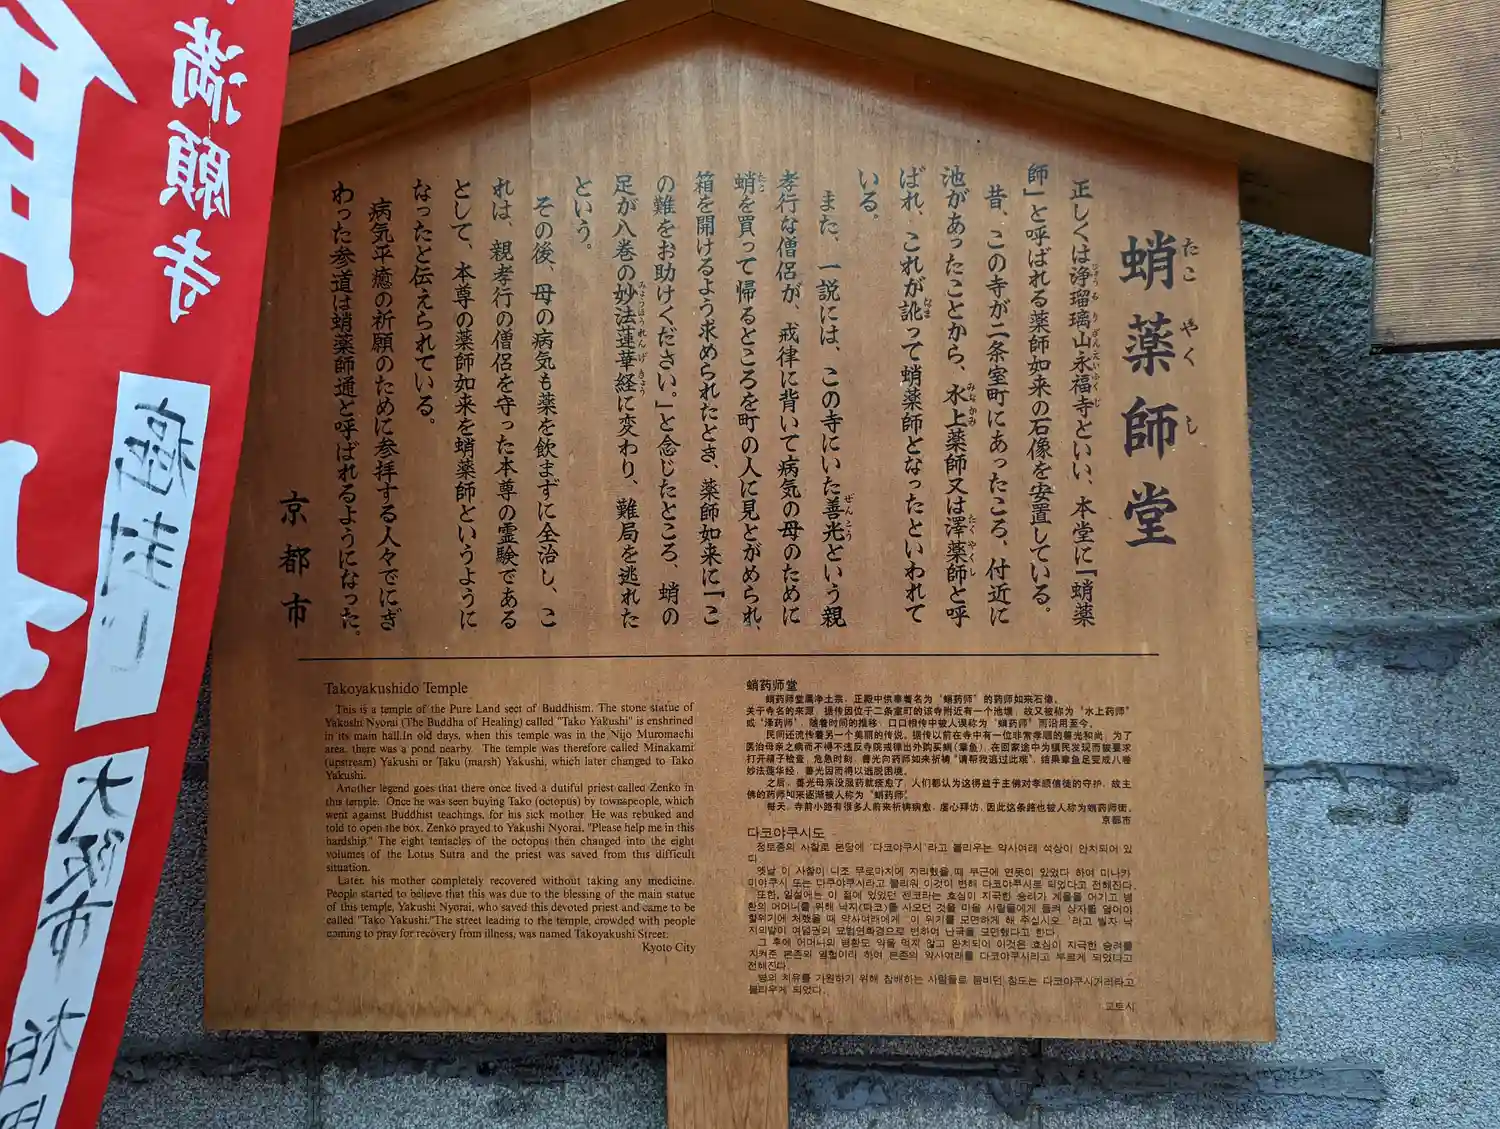 満願寺
癌封じ
大阪市
蛸薬師堂
たこやくし
正しくは浄瑠璃山永福寺といい、本堂に「蛸薬
師」と呼ばれる薬師如来の石像を安置している。
昔、この寺が二条室町にあったころ、付近に
池があったことから、水上薬師又は澤薬師と呼
ばれ、これが訛って蛸薬師となったといわれて
いる。
また、一説には、この寺にいた善光という親
孝行な僧侶が、戒律に背いて病気の母のために
蛸を買って帰るところを町の人に見とがめられ、
箱を開けるよう求められたとき、薬師如来に「こ
の難をお助けください。」と念じたところ、蛸の
足が八巻の妙法蓮華経に変わり、難局を逃れた
という。
その後、母の病気も薬を飲まずに全治し、こ
れは、親孝行の僧侶を守った本尊の霊験である
として、本尊の薬師如来を蛸薬師というように
なったと伝えられている。
病気平癒の祈願のために参拝する人々でにぎ
わった参道は蛸薬師通と呼ばれるようになった。
京都市
Takoyakushido Temple
This is a temple of the Pure Land sect of Buddhism. The stone statue of
Yakushi Nyorai (The Buddha of Healing) called "Tako Yakushi" is enshrined
in its main hall.In old days, when this temple was in the Nijo Muromachi
area, there was a pond nearby. The temple was therefore called Minakami
(upstream) Yakushi or Taku (marsh) Yakushi, which later changed to Tako
Yakushi.
Another legend goes that there once lived a dutiful priest called Zenko in
this temple. Once he was seen buying Tako (octopus) by townspeople, which
went against Buddhist teachings, for his sick mother. He was rebuked and
told to open the box. Zenko prayed to Yakushi Nyorai, "Please help me in this
hardship." The eight tentacles of the octopus then changed into the eight
volumes of the Lotus Sutra and the priest was saved from this difficult
situation.
Later, his mother completely recovered without taking any medicine.
People started to believe that this was due to the blessing of the main statue
of this temple, Yakushi Nyorai, who saved this devoted priest and came to be
called "Tako Yakushi."The street leading to the temple, crowded with people
coming to pray for recovery from illness, was named Takoyakushi Street.
Kyoto City
蛸药师堂
蛸药师堂属净土宗，正殿中供奉著名为“蛸药师”的药师如来石像。
关于寺名的来源，据传因位于二条室町的该寺附近有一个池塘，故又被称为“水上药师”
或“泽药师”，随着时间的推移，口口相传中被人误称为“蛸药师”而沿用至今。
民间还流传着另一个美丽的传说。据传以前在寺中有一位非常孝顺的善光和尚，为了
医治母亲之病而不得不违反寺院戒律出外购买蛸（章鱼），在回家途中为镇民发现而被要求
打开箱子检查，危急时刻，善光向药师如来祈祷“请帮我逃过此难”，结果章鱼足变成八卷
妙法莲华经，善光因而得以逃脱困境。
之后，善光母亲没服药就痊愈了，人们都认为这得益于主佛对孝顺僧徒的守护，故主
佛的药师如来逐渐被人称为“蛸药师”。
每天，寺前小路有很多人前来祈祷病愈，虔心拜访，因此这条路也被人称为蛸药师街。
京都市
다코야쿠시도
정토종의 사찰로 본당에 '다코야쿠시'라고 불리우는 약사여래 석상이 안치되어 있
다.
옛날 이 사찰이 니조 무로마치에 자리했을 때 부근에 연못이 있었다 하여 미나카
미야쿠시 또는 다쿠야쿠시라고 불리워 이것이 변해 다코야쿠시로 되었다고 전해진다.
그 후에 어머니의 병환도 약을 먹지 않고 완치되어 이것은 효심이 지극한 승려를
지켜준 본존의 영험이라 하여 본존의 약사여래를 다코야쿠시라고 부르게 되었다고
전해진다.
병의 치유를 기원하기 위해 참배하는 사람들로 붐비던 참도는 다코야쿠시거리라고
불리우게 되었다.
교토시